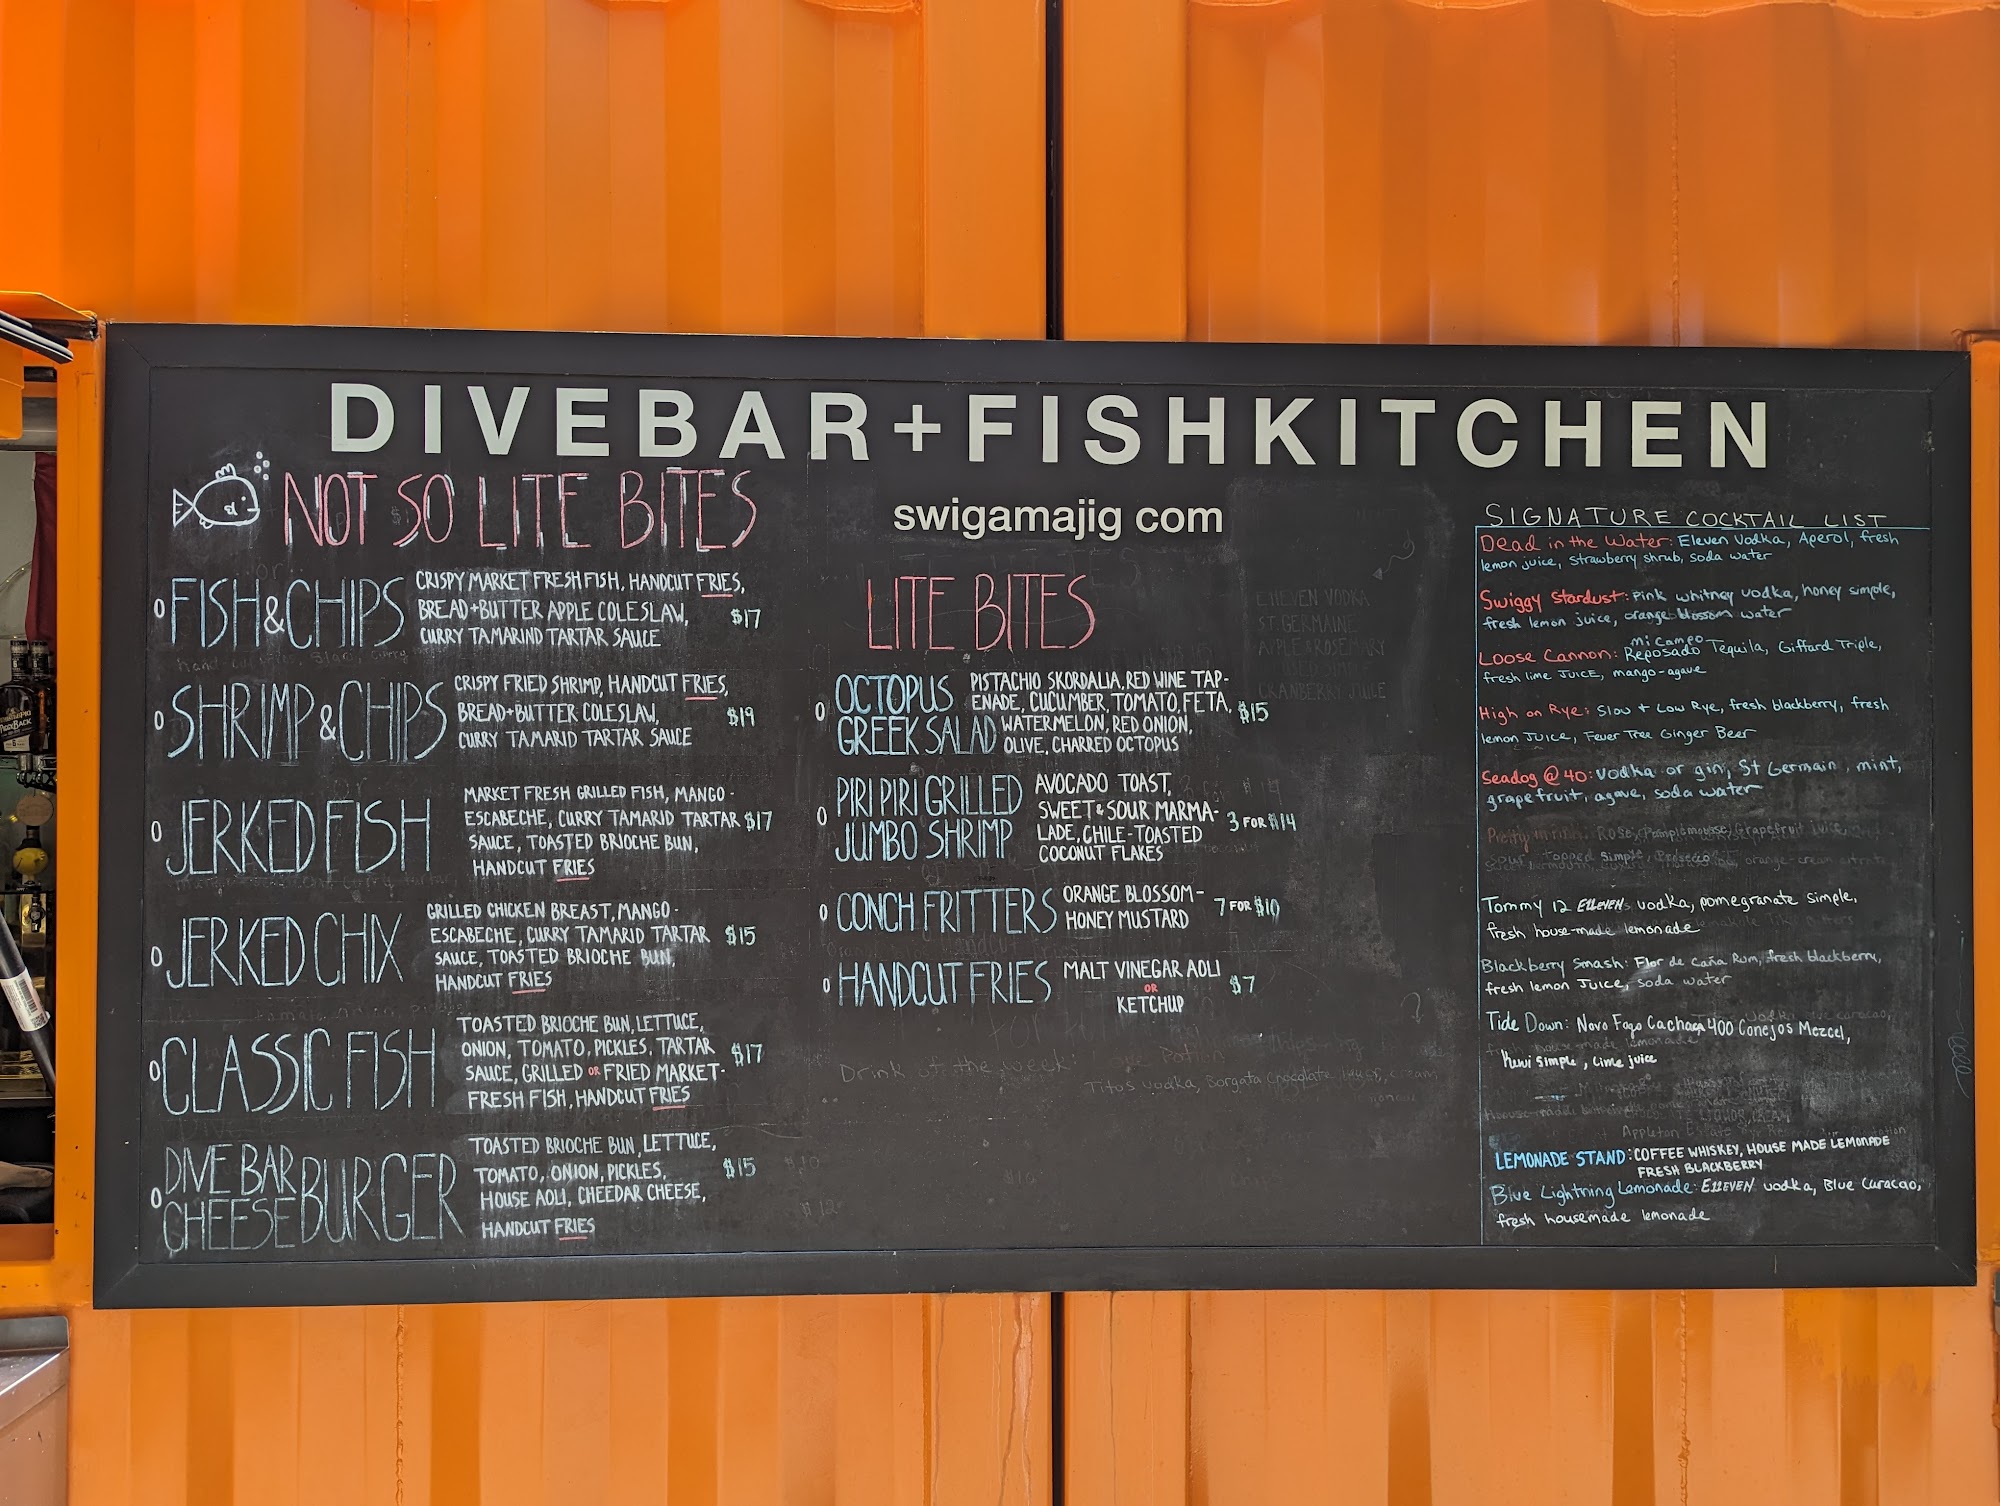 DIVEBAR+FISHKITCHEN
swigamajig com
NOT SO LITE BITES
FISH & CHIPS
CRISPY MARKET FRESH FISH, HANDCUT FRIES,
BREAD+BUTTER APPLE COLESLAW,
CURRY TAMARIND TARTAR SAUCE
$17
SHRIMP & CHIPS
CRISPY FRIED SHRIMP, HANDCUT FRIES,
BREAD+BUTTER COLESLAW,
CURRY TAMARID TARTAR SAUCE
$19
JERKED FISH
MARKET FRESH GRILLED FISH, MANGO-
ESCABECHE, CURRY TAMARID TARTAR
SAUCE, TOASTED BRIOCHE BUN,
HANDCUT FRIES
$17
JERKED CHIX
GRILLED CHICKEN BREAST, MANGO-
ESCABECHE, CURRY TAMARID TARTAR
SAUCE, TOASTED BRIOCHE BUN,
HANDCUT FRIES
$15
CLASSIC FISH
TOASTED BRIOCHE BUN, LETTUCE,
ONION, TOMATO, PICKLES, TARTAR
SAUCE, GRILLED OR FRIED MARKET-
FRESH FISH, HANDCUT FRIES
$17
DIVE BAR
CHEESE BURGER
TOASTED BRIOCHE BUN, LETTUCE,
TOMATO, ONION, PICKLES,
HOUSE AOLI, CHEEDAR CHEESE,
HANDCUT FRIES
$15
LITE BITES
OCTOPUS
GREEK SALAD
PISTACHIO SKORDALIA, RED WINE TAP-
ENADE, CUCUMBER, TOMATO, FETA,
WATERMELON, RED ONION,
OLIVE, CHARRED OCTOPUS
$15
PIRI PIRI GRILLED
JUMBO SHRIMP
AVOCADO TOAST,
SWEET & SOUR MARMA-
LADE, CHILE-TOASTED
COCONUT FLAKES
3 FOR $14
CONCH FRITTERS
ORANGE BLOSSOM-
HONEY MUSTARD
7 FOR $10
HANDCUT FRIES
MALT VINEGAR AOLI
OR
KETCHUP
$7
ELLEVEN VODKA
ST. GERMAINE
APPLE & ROSEMARY
CRANBERRY JUICE
Drink of the week:
Titos vodka, Borgata Chocolate
SIGNATURE COCKTAIL LIST
Dead in the Water: Eleven Vodka, Aperol, fresh
lemon juice, strawberry shrub, soda water
Swiggy Stardust: Pink whitney vodka, honey simple,
fresh lemon juice, orange blossom water
mi campo
Loose Cannon: Reposado Tequila, Giffard Triple,
fresh lime JUICE, mango-agave
High on Rye: Slow + Low Rye, fresh blackberry, fresh
lemon JUICE, Fever Tree Ginger Beer
Seadog @ 40: vodka or gin, St Germain, mint,
grapefruit, agave, soda water
Rosé, Pamplemousse, Grapefruit Juice
Simple, Prosecco
Tommy 12 ELLEVEN vodka, pomegranate simple,
fresh house-made lemonade
Blackberry Smash: Flor de Caña Rum, fresh blackberry,
fresh lemon Juice, soda water
Tide Down: Novo Fogo Cachaça 400 Conejos Mezcel,
kiwi simple, lime juice
LEMONADE STAND: COFFEE WHISKEY, HOUSE MADE LEMONADE
FRESH BLACKBERRY
Blue Lightning Lemonade: ELLEVEN vodka, Blue Curacao,
fresh housemade lemonade